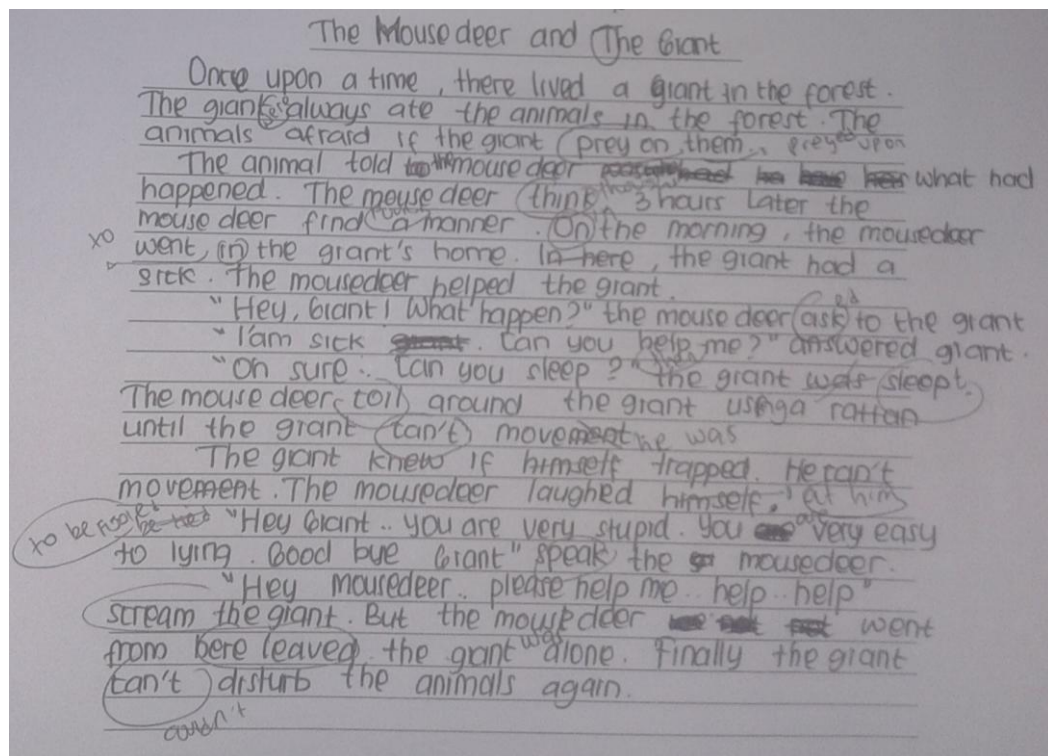 The Mouse deer and The Giant
Once upon a time, there lived a giant in the forest.
The giant always ate the animals in the forest. The
animals afraid if the giant prey on them.. preyed upon
The animal told to the mouse deer what had
happened. The mouse deer think 3 hours later the
mouse deer find a manner. On the morning, the mousedeer
to went in the giant's home. In here, the giant had a
sick. The mousedeer helped the giant.
"Hey, Giant! What happen?" the mouse deer ask ed to the giant
"I'am sick. Can you help me?" answered giant.
"Oh sure.. Can you sleep?" the giant was sleept.
The mouse deer coil around the giant using a rattan
until the giant can't movement he was
The giant knew if himself trapped. He can't
movement. The mousedeer laughed himself. at him
to be fooled be tied "Hey Giant.. you are very stupid. You are very easy
to lying. Good bye Giant" speak the mousedeer.
"Hey mousedeer.. please help me.. help.. help"
scream the giant. But the mouse deer went
from here leaved the giant was alone. Finally the giant
can't disturb the animals again.